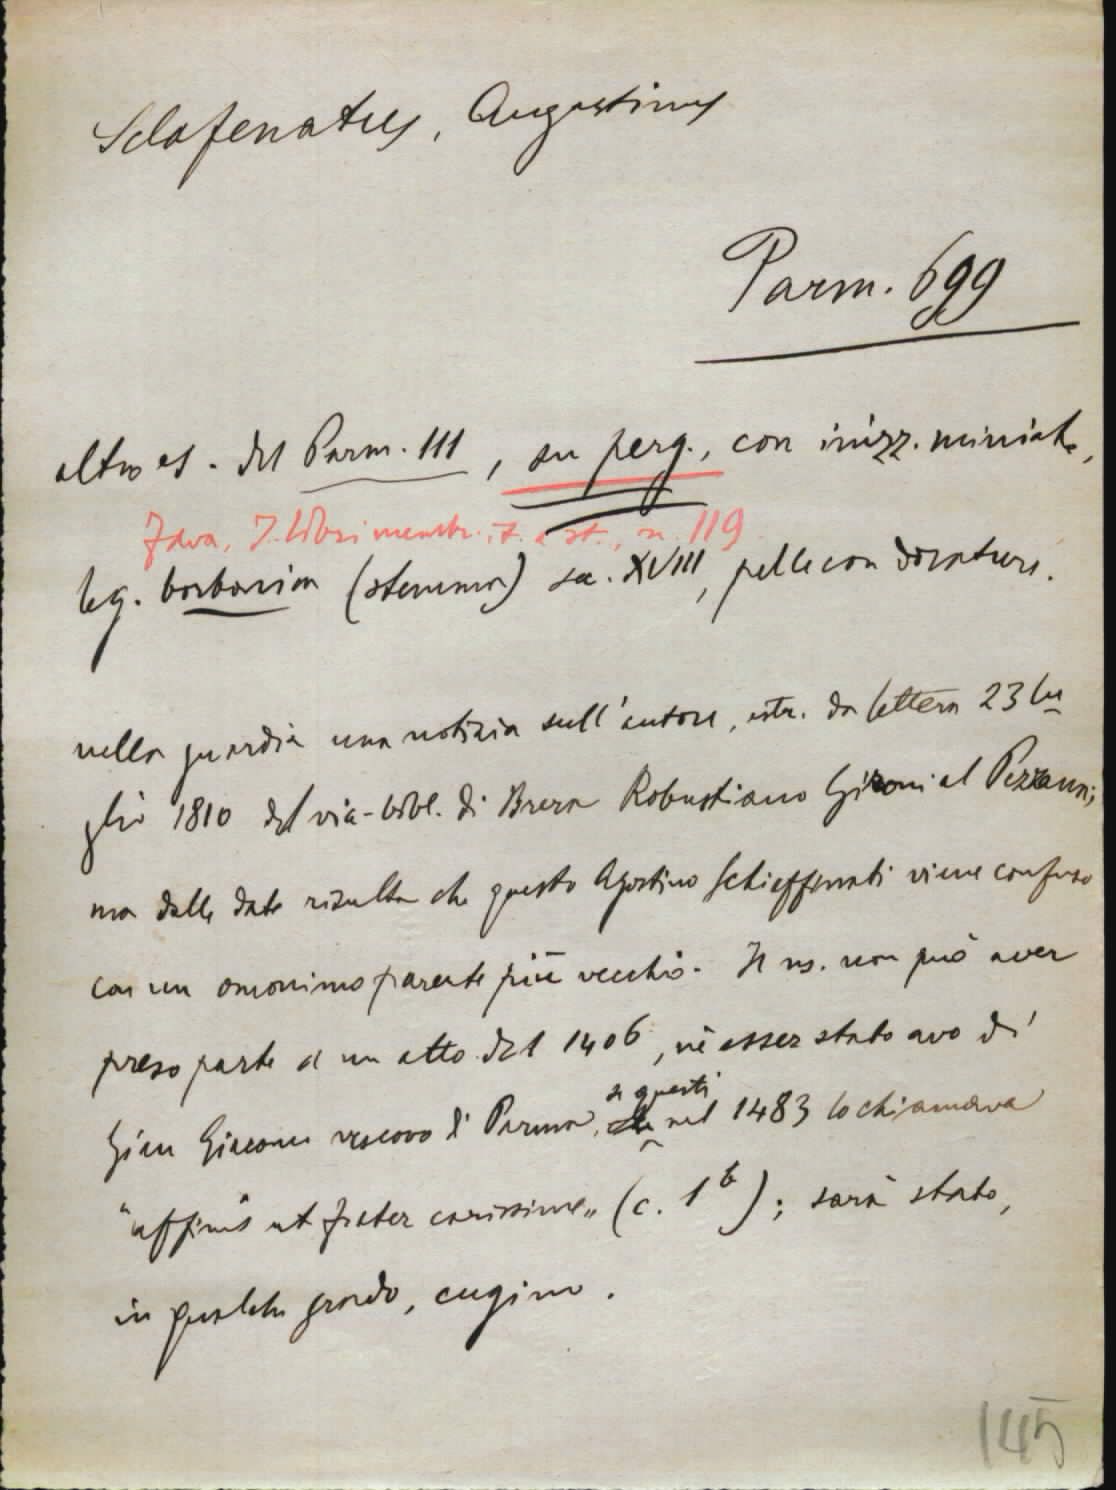 Sclafenatus, Augustinus
Parm. 699
altro es. del Parm. 111, su perg., con inizz. miniate,
leg. borbonica (stemma) sec. XVIII, pelle con dorature.
nella guardia una notizia sull'autore, estr. da lettera 23 lu
glio 1810 del vice-bibl. di Brera Robustiano Gironi al Pezzana;
ma dalle date risulta che questo Agostino Schiaffinati viene confuso
con un omonimo parente più vecchio. Il ns. non può aver
preso parte a un atto del 1406, nè esser stato avo di
Gian Giacomo vescovo di Parma, se questi nel 1483 lo chiamava
"affinis ut frater carissime" (c. 1b); sarà stato,
in qualche grado, cugino.
145